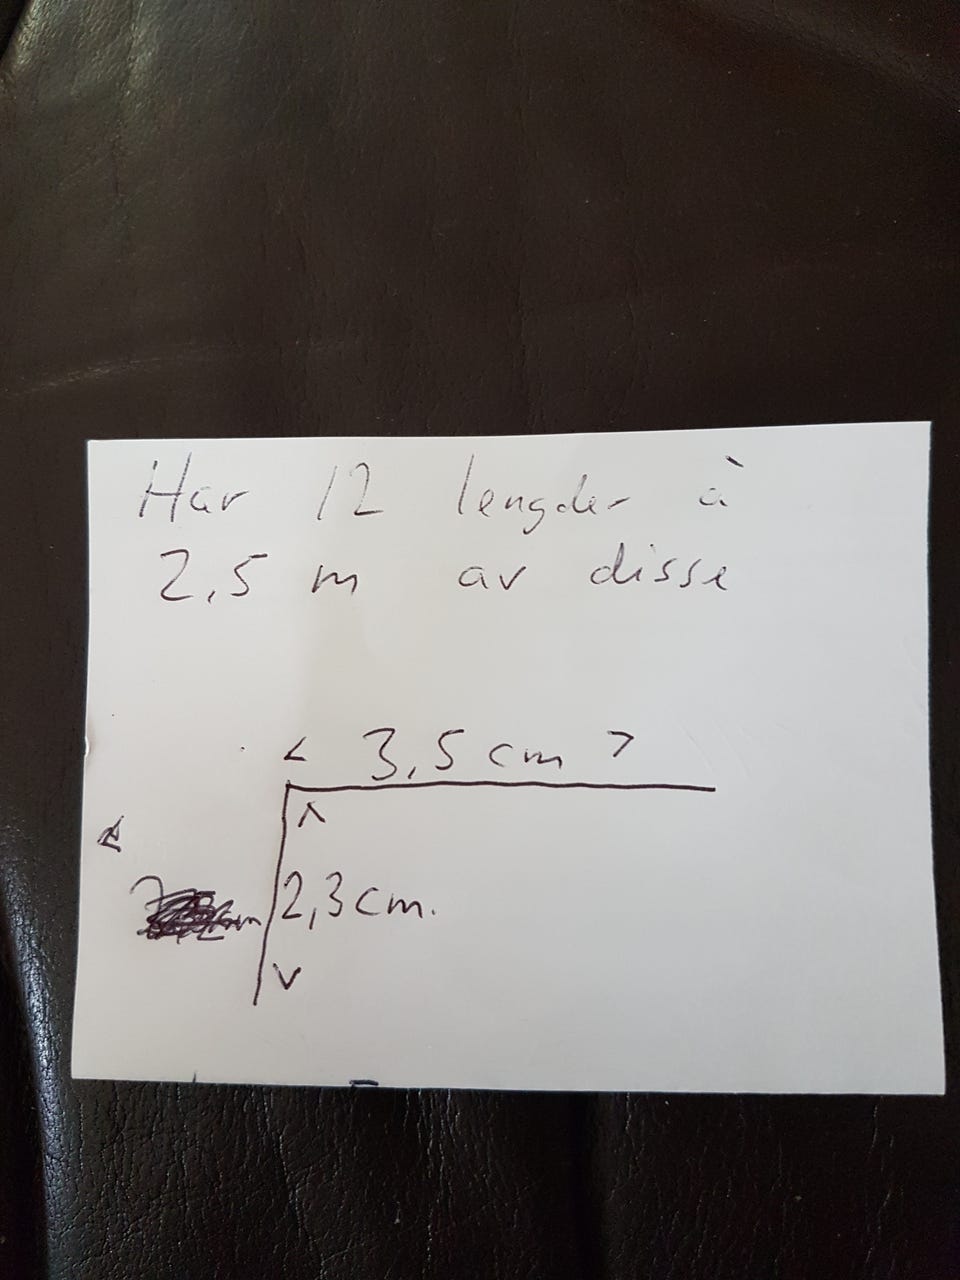 Har 12 lengder à
2,5 m av disse
< 3,5 cm >
2,3 cm.